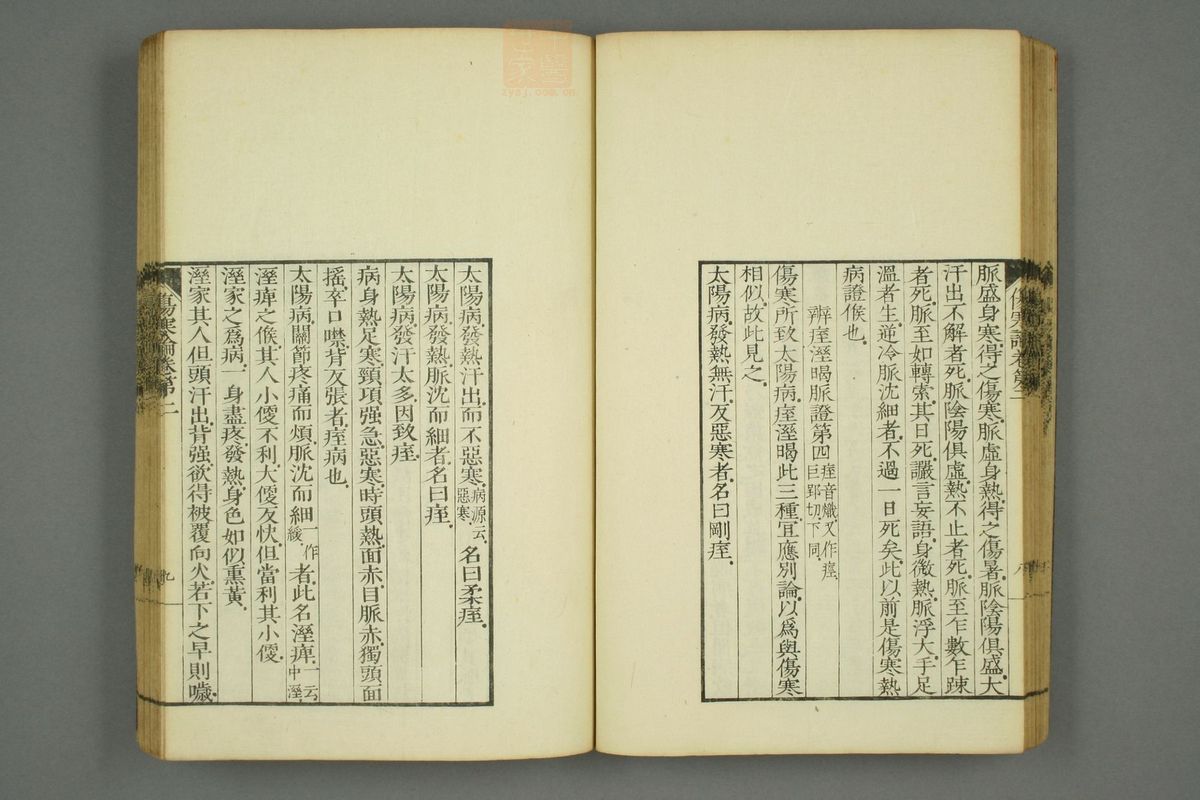 脈盛身寒得之傷寒脈虛身熱得之傷暑脈陰陽俱盛大
汗出不解者死脈陰陽俱虛熱不止者死脈至乍數乍踈
者死脈至如轉索其日死讝言妄語身微熱脈浮大手足
溫者生逆冷脈沈細者不過一日死矣此以前是傷寒熱
病證候也
辨痓溼暍脈證第四 痓音熾又作痙
巨郢切下同
傷寒所致太陽病痓溼暍此三種宜應別論以爲與傷寒
相似故此見之
太陽病發熱無汗反惡寒者名曰剛痓
太陽病發熱汗出而不惡寒 病源云
惡寒 名曰柔痓
太陽病發熱脈沈而細者名曰痓
太陽病發汗太多因致痓
病身熱足寒頸項强急惡寒時頭熱面赤目脈赤獨頭面
搖卒口噤背反張者痓病也
太陽病關節疼痛而煩脈沈而細 一作
緩 者此名溼痺 一云
中溼
溼痺之候其人小便不利大便反快但當利其小便
溼家之爲病一身盡疼發熱身色如似熏黃
溼家其人但頭汗出背强欲得被覆向火若下之早則噦
傷寒論卷第二
九
zysj.com.cn